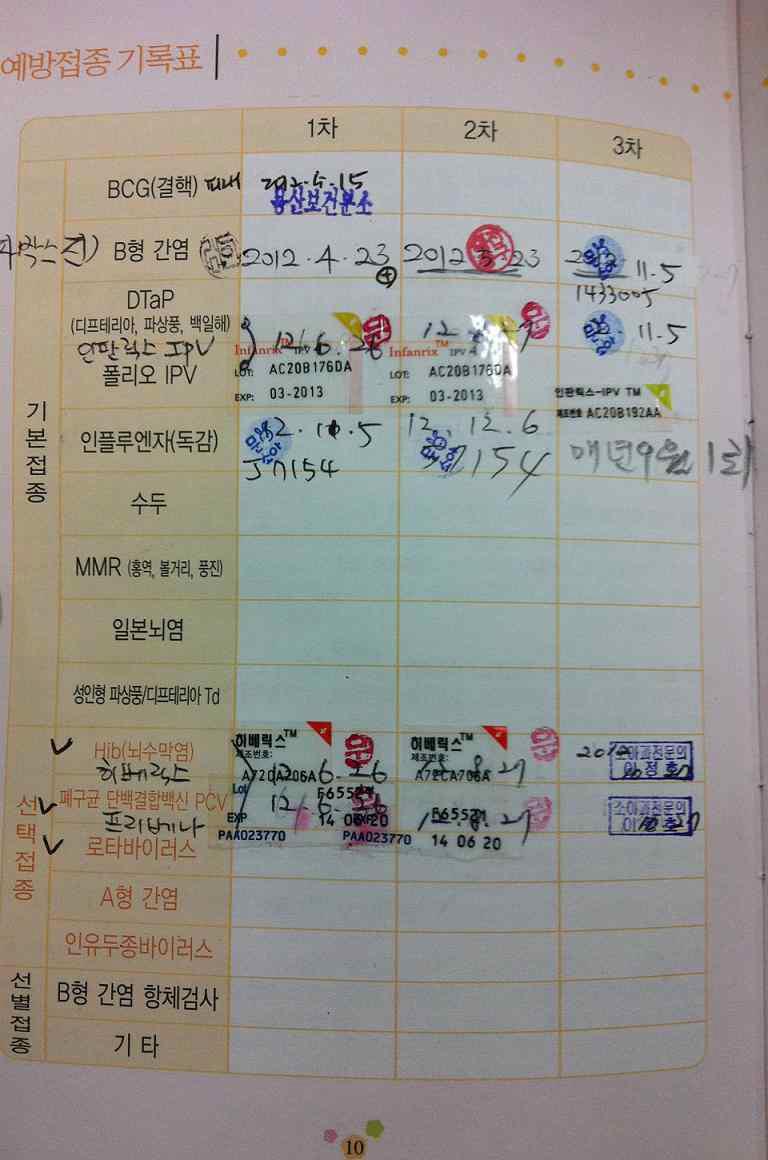 예방접종 기록표
1차 2차 3차
기본접종
BCG(결핵) 피내 2012.5.15
용산보건분소
B형 간염 2012.4.23 2012 5 23 11.5
1433005
DTaP
(디프테리아, 파상풍, 백일해) 11.5
인판릭스 IPV 12.6.26 12
Infanrix™ IPV Infanrix™ IPV
폴리오 IPV
LOT: AC20B176DA LOT: AC20B176DA
EXP: 03-2013 EXP: 03-2013
인판릭스-IPV TM
제조번호 AC20B192AA
인플루엔자(독감) 12.12.6 매년 9월 1회
수두
MMR (홍역, 볼거리, 풍진)
일본뇌염
성인형 파상풍/디프테리아 Td
선택접종
Hib(뇌수막염) 히베릭스™ 히베릭스™ 소아과전문의
제조번호: 제조번호:
히베릭스 A72CA206A 12.6.26 A72CA706A 8.27
폐구균 단백결합백신 PCV Lot F65521 F65521 소아과전문의
프리베나 EXP 14 06 20
PAA023770 PAA023770 14 06 20
로타바이러스
A형 간염
인유두종바이러스
선별접종
B형 간염 항체검사
기 타
10